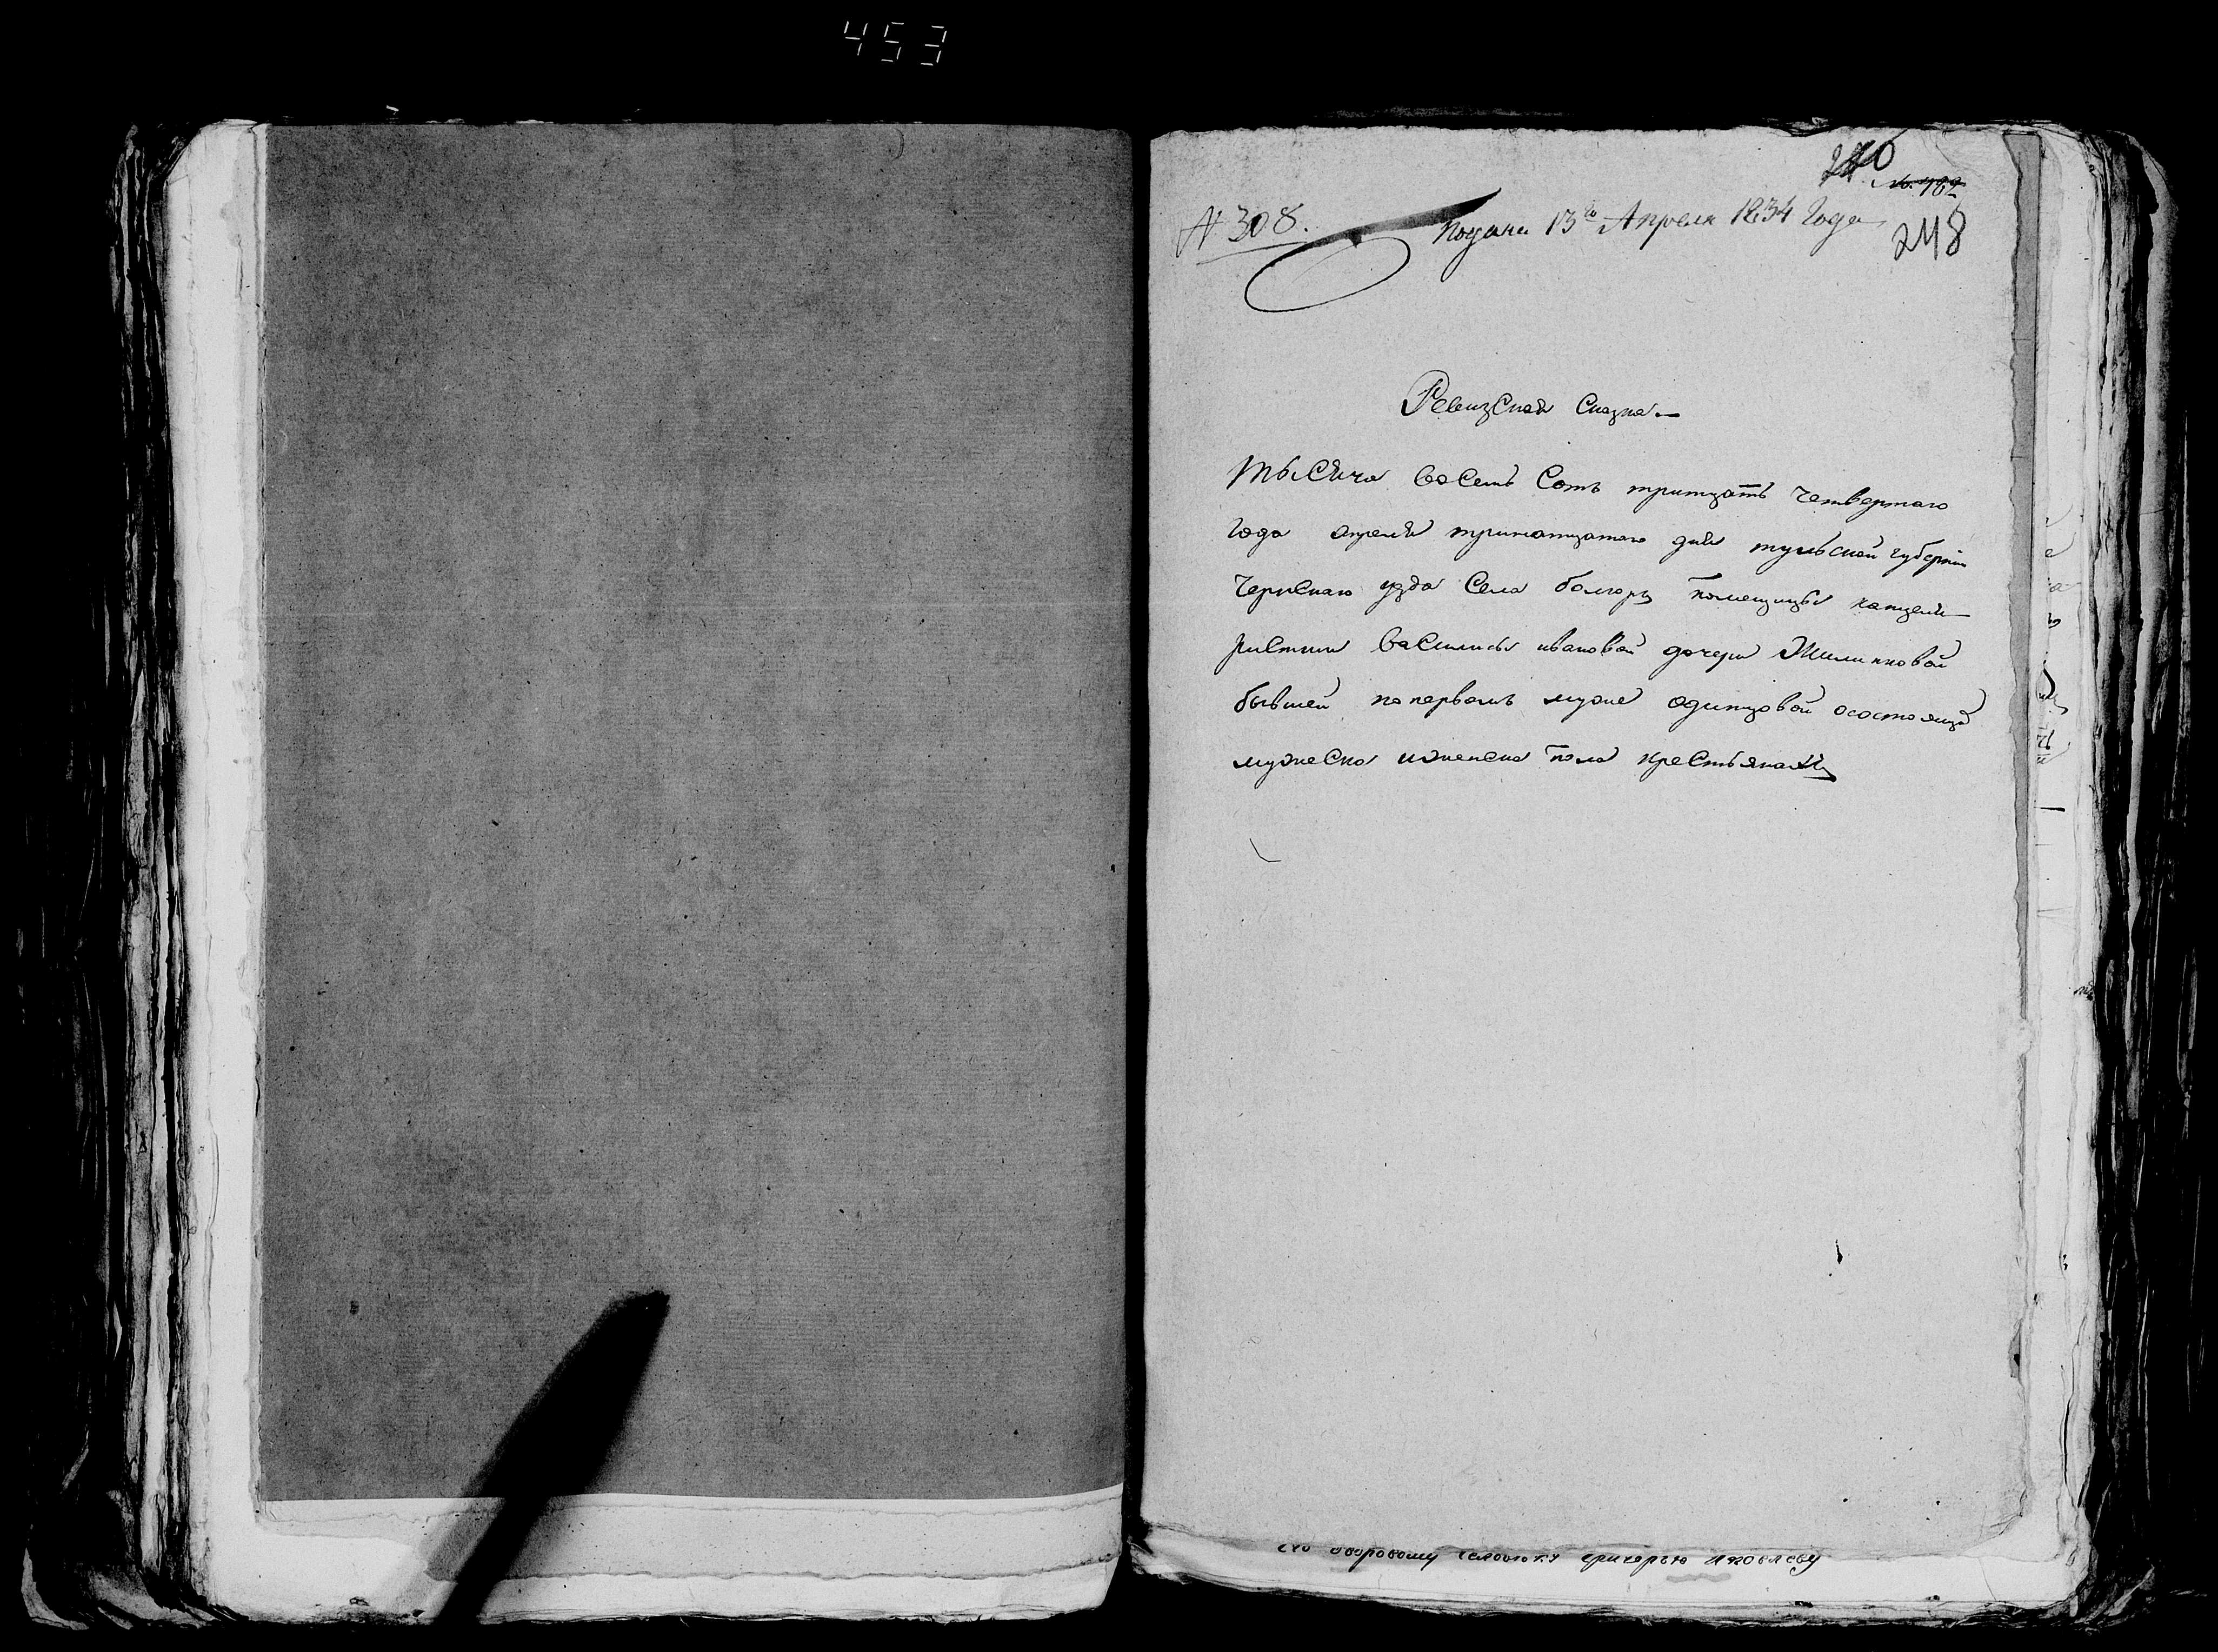 453
240
№ 182
№ 308.
Подана 13го Апреля 1834 Года
248
Ревизская Сказка
Тысяча восемь Сотъ тритцать четвертаго
Года апреля тринатцатаго дня тульской губернии
Чернскаго уезда Села помещицы канцеля
ристки василисы ивановой дочери Жилинковой
бывшей попервомъ муже одинцовой осостоящихъ
мужеска иженска пола крестьянахъ
его дворовому человеку григорью яковлеву